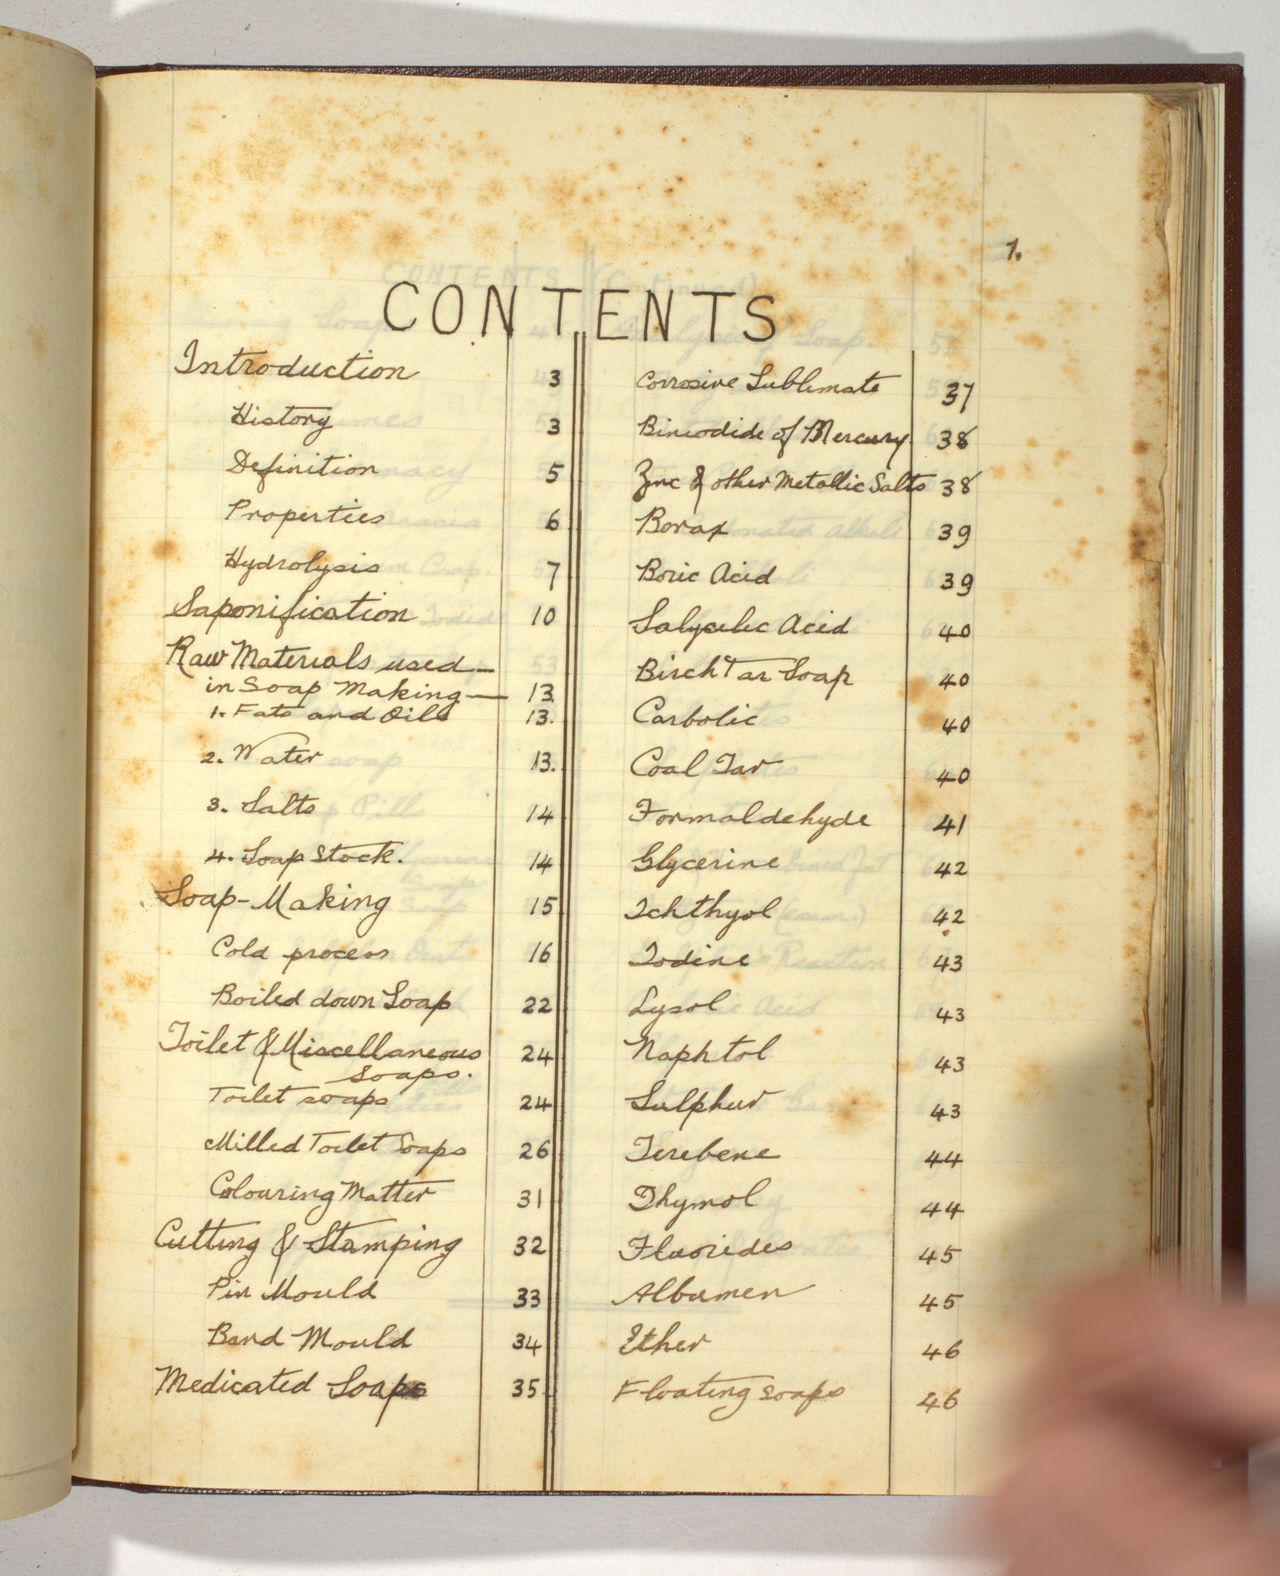 1.
CONTENTS
Introduction 3
History 3
Definition 5
Properties 6
Hydrolysis 7
Saponification 10
Raw Materials used —
in Soap Making — 13
1. Fats and Oils 13.
2. Water 13.
3. Salts 14
4. Soap Stock. 14
Soap-Making 15
Cold process 16
Boiled down Soap 22
Toilet & Miscellaneous 24
Soaps.
Toilet soaps 24
Milled Toilet Soaps 26
Colouring Matter 31
Cutting & Stamping 32
Pin Mould 33
Band Mould 34
Medicated Soaps 35
Corrosive Sublimate 37
Biniodide of Mercury 38
Zinc & other Metallic Salts 38
Borax 39
Boric Acid 39
Salycilic Acid 40
Birch Tar Soap 40
Carbolic 40
Coal Tar 40
Formaldehyde 41
Glycerine 42
Ichthyol 42
Iodine 43
Lysol 43
Naphtol 43
Sulphur 43
Terebene 44
Thymol 44
Fluorides 45
Albumen 45
Ether 46
Floating soaps 46